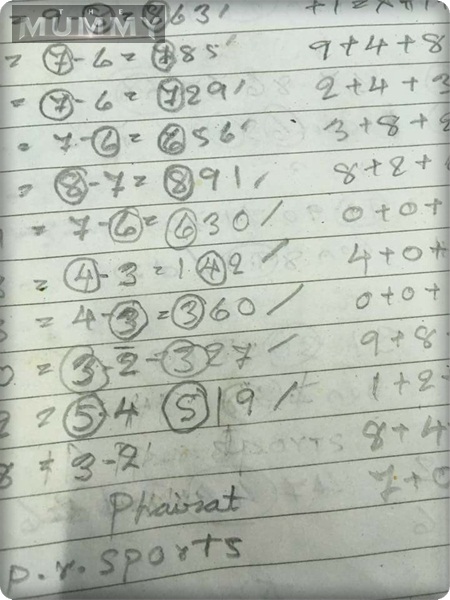 THE
MUMMY
863/ +1
= 7-6 = 785 9+4+8
= 7-6 = 729/ 2+4+3
= 7-6 = 656 3+8+
= 8-7 = 891/ 8+8+
= 7-6 = 630/ 0+0+
= 4-3 = 142/ 4+0+
= 4-3 = 360/ 0+0+
= 3-2-327/ 9+8
= 5-4 519/ 1+2-
= 3-2 8+4
Phairat 7+0
p.r. sports